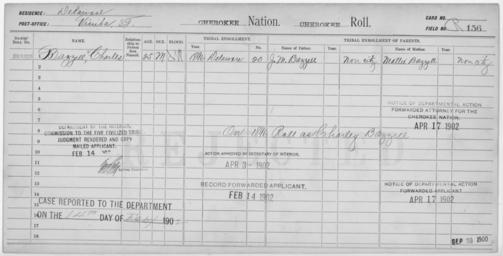 RESIDENCE: Delaware
POST-OFFICE: Vinita I.T.
CHEROKEE Nation. CHEROKEE Roll.
CARD NO.
FIELD NO. 156
NAME AGE SEX BLOOD TRIBAL ENROLLMENT TRIBAL ENROLLMENT OF PARENTS
Year No. Name of Father Year Name of Mother Year
1 Bazzell Charles 25 M 1896 Delaware 20 J.M. Bazzell Non city Mollie Bazzell Non city
2
3
4
5
6
NOTICE OF DEPARTMENTAL ACTION
FORWARDED ATTORNEY FOR THE
CHEROKEE NATION.
APR 17 1902
DEPARTMENT OF THE INTERIOR,
COMMISSION TO THE FIVE CIVILIZED TRIBES
JUDGMENT RENDERED AND COPY
MAILED APPLICANT.
FEB 14 1902
On 1896 Roll as Charley Bazzell
REJECTED
ACTION APPROVED BY SECRETARY OF INTERIOR.
APR 3 - 1902
11
12
13
14
15
16
17
RECORD FORWARDED APPLICANT.
FEB 14 1902
NOTICE OF DEPARTMENTAL ACTION
FORWARDED APPLICANT
APR 17 1902
CASE REPORTED TO THE DEPARTMENT
ON THE 14TH DAY OF Feby 190
SEP 1900